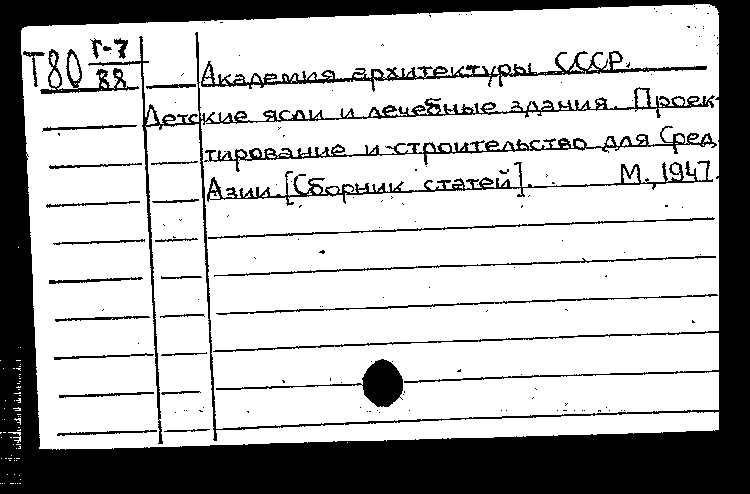 Т80 Г-7/88
Академия архитектуры СССР.
Детские ясли и лечебные здания. Проек-
тирование и строительство для Сред.
Азии. [Сборник статей]. М., 1947.